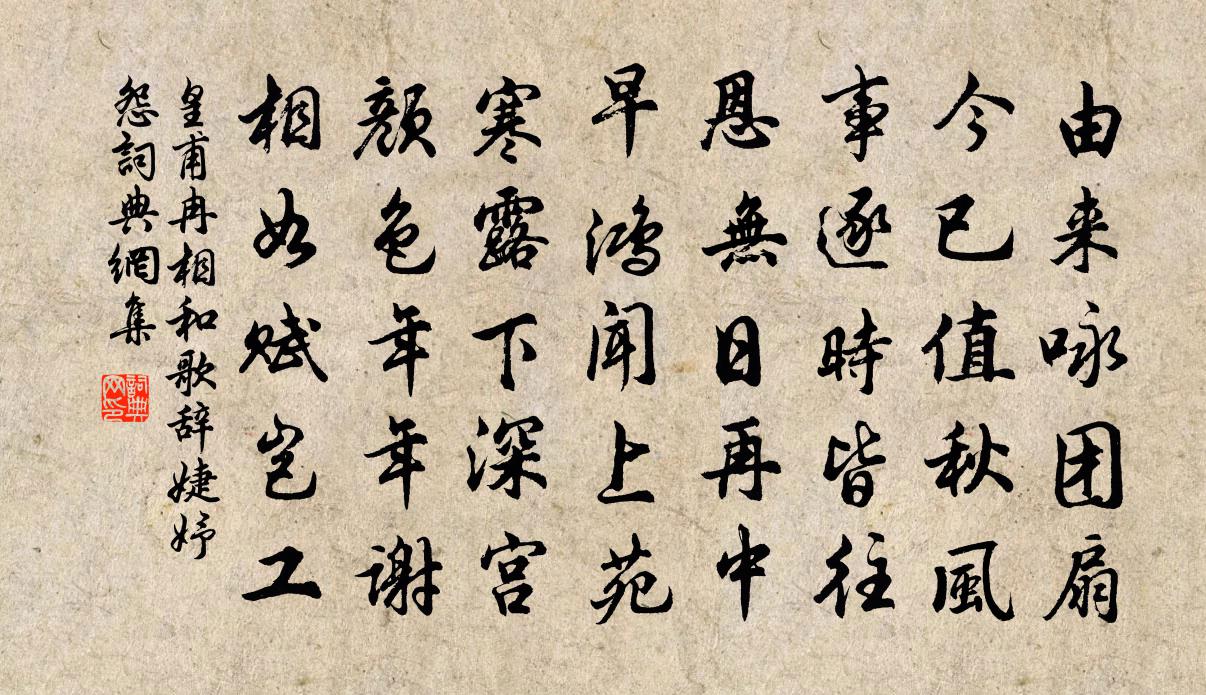 由来咏团扇
今已值秋風
事逐時皆往
恩無日再中
早鸿闻上苑
寒露下深宫
颜色年年谢
相如赋岂工
皇甫冉相和歌辞婕妤
怨詞典網集
詞典
网印